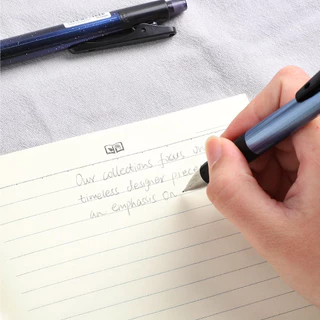 Our collections focus on
timeless designer piece
an emphasis on